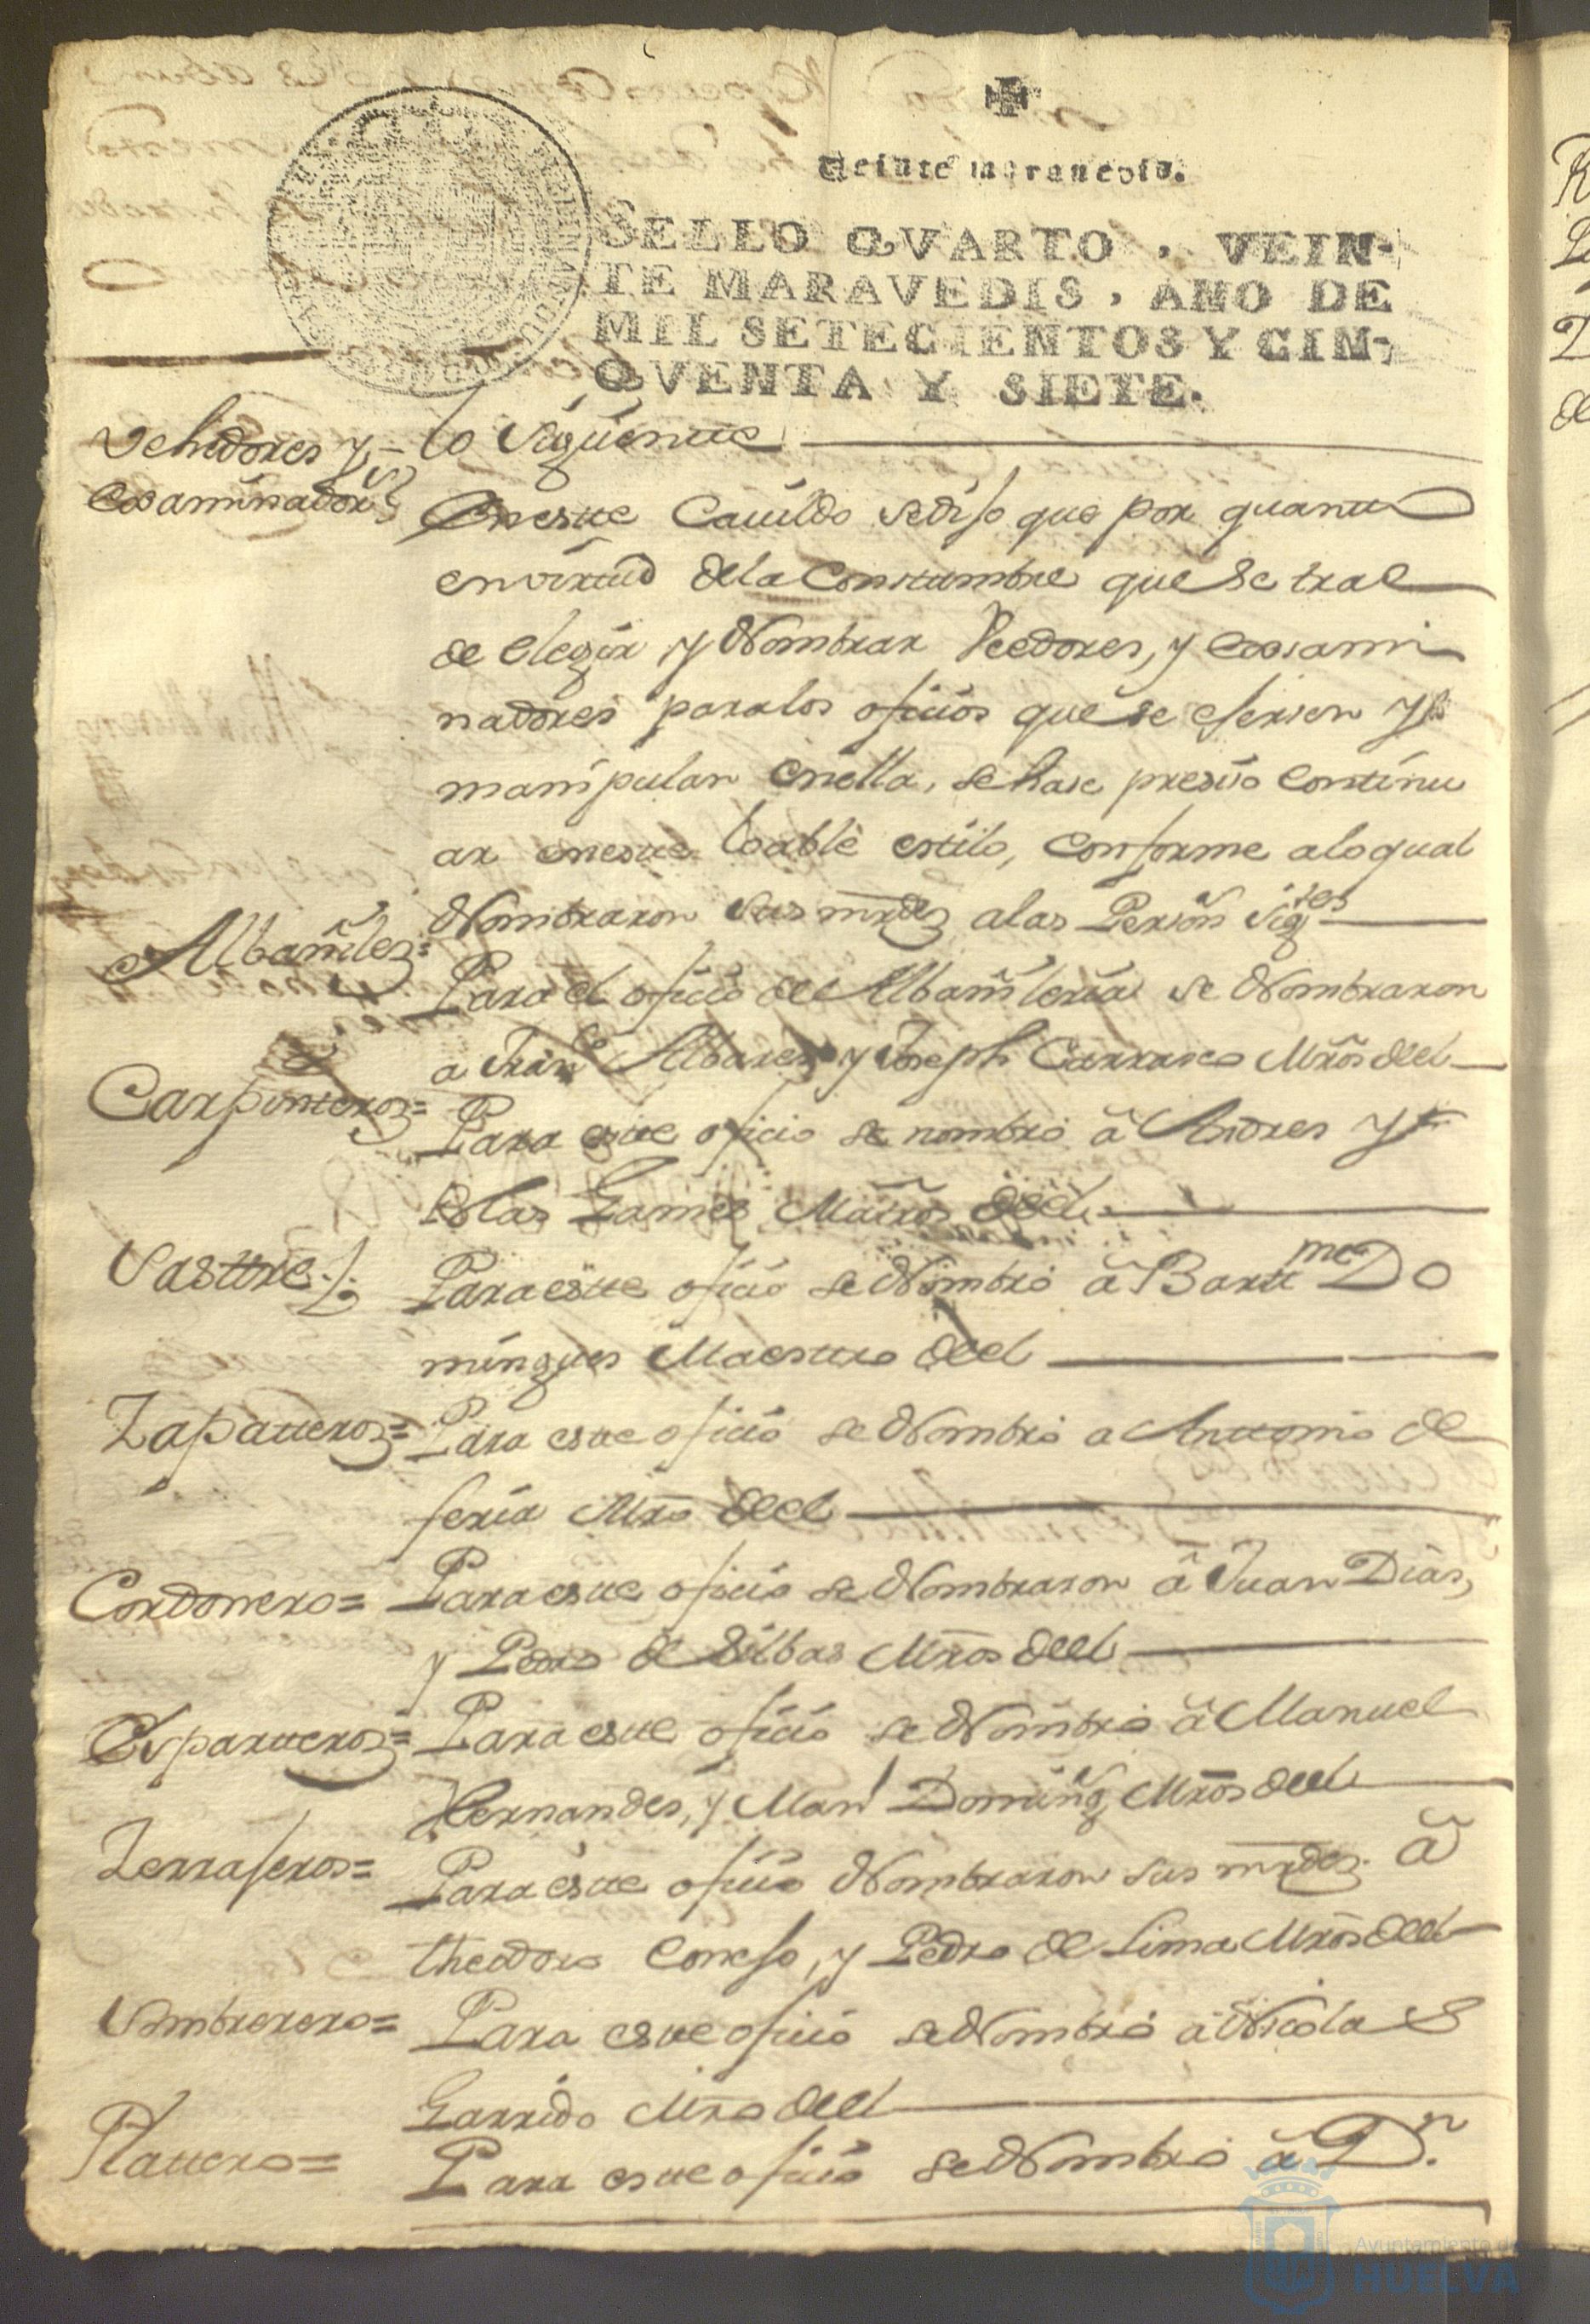 Veinte maravedis.
SELLO QVARTO, VEIN-
TE MARAVEDIS, AÑO DE
MIL SETECIENTOS Y CIN-
QVENTA Y SIETE.
Vehedores y lo siguiente
Exsaminadors
En este Cavildo se diso que por quanto
en virtud de la Constumbre que se trae
de elegir y Nombrar Veedores, y exsami
nadores para los ofisios que se esersen y
manipular en ella, se hase presiso Continu
ar en este loable estilo, conforme a lo qual
Nombraron sus mrdes a las Person sigtes
Albañiles=
Para el ofisio de Albañileria se Nombraron
a Franco Albares y Joseph Carrasco Mros de el
Carpinteros=
Para este oficio se nombró â Andres y
Blas Gamez Maitros de el
Sastre
Para este ofisio se Nombró â Bartme Do
mingues Maestro de el
Zapatteros= Para este ofisio se Nombró a Anttonio de
feria Mro de el
Cordonero= Para este ofisio se Nombraron â Juan Dias,
y Pedro de Silbas Mros de el
Espartteros= Para este ofisio se Nombró â Manuel
Hernandes, y Manl Doming Mros de el
Zerrajeros= Para este ofisio Nombraron sus mrdes â
theodoro Conejo, y Pedro de Lima Mros de el
Sombrerero= Para este ofisio se Nombró â Nicolas
Garrido Mro de el
Plattero= Para este ofisio se Nombró â Dn.
Ayuntamiento de
HUELVA